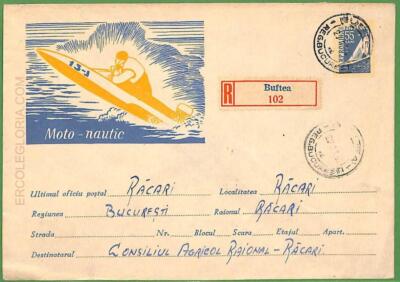 13-1
Moto-nautic
R
Buftea
102
55
REG. BUCUREȘTI
ERCOLEGLORIA.COM
Ultimul oficiu poștal RĂCARI Localitatea RĂCARI
Regiunea BUCUREȘTI Raionul RĂCARI
Strada Nr. Blocul Scara Etajul Apart.
Destinatarul CONSILIUL AGRICOL RAIONAL-RĂCARI.